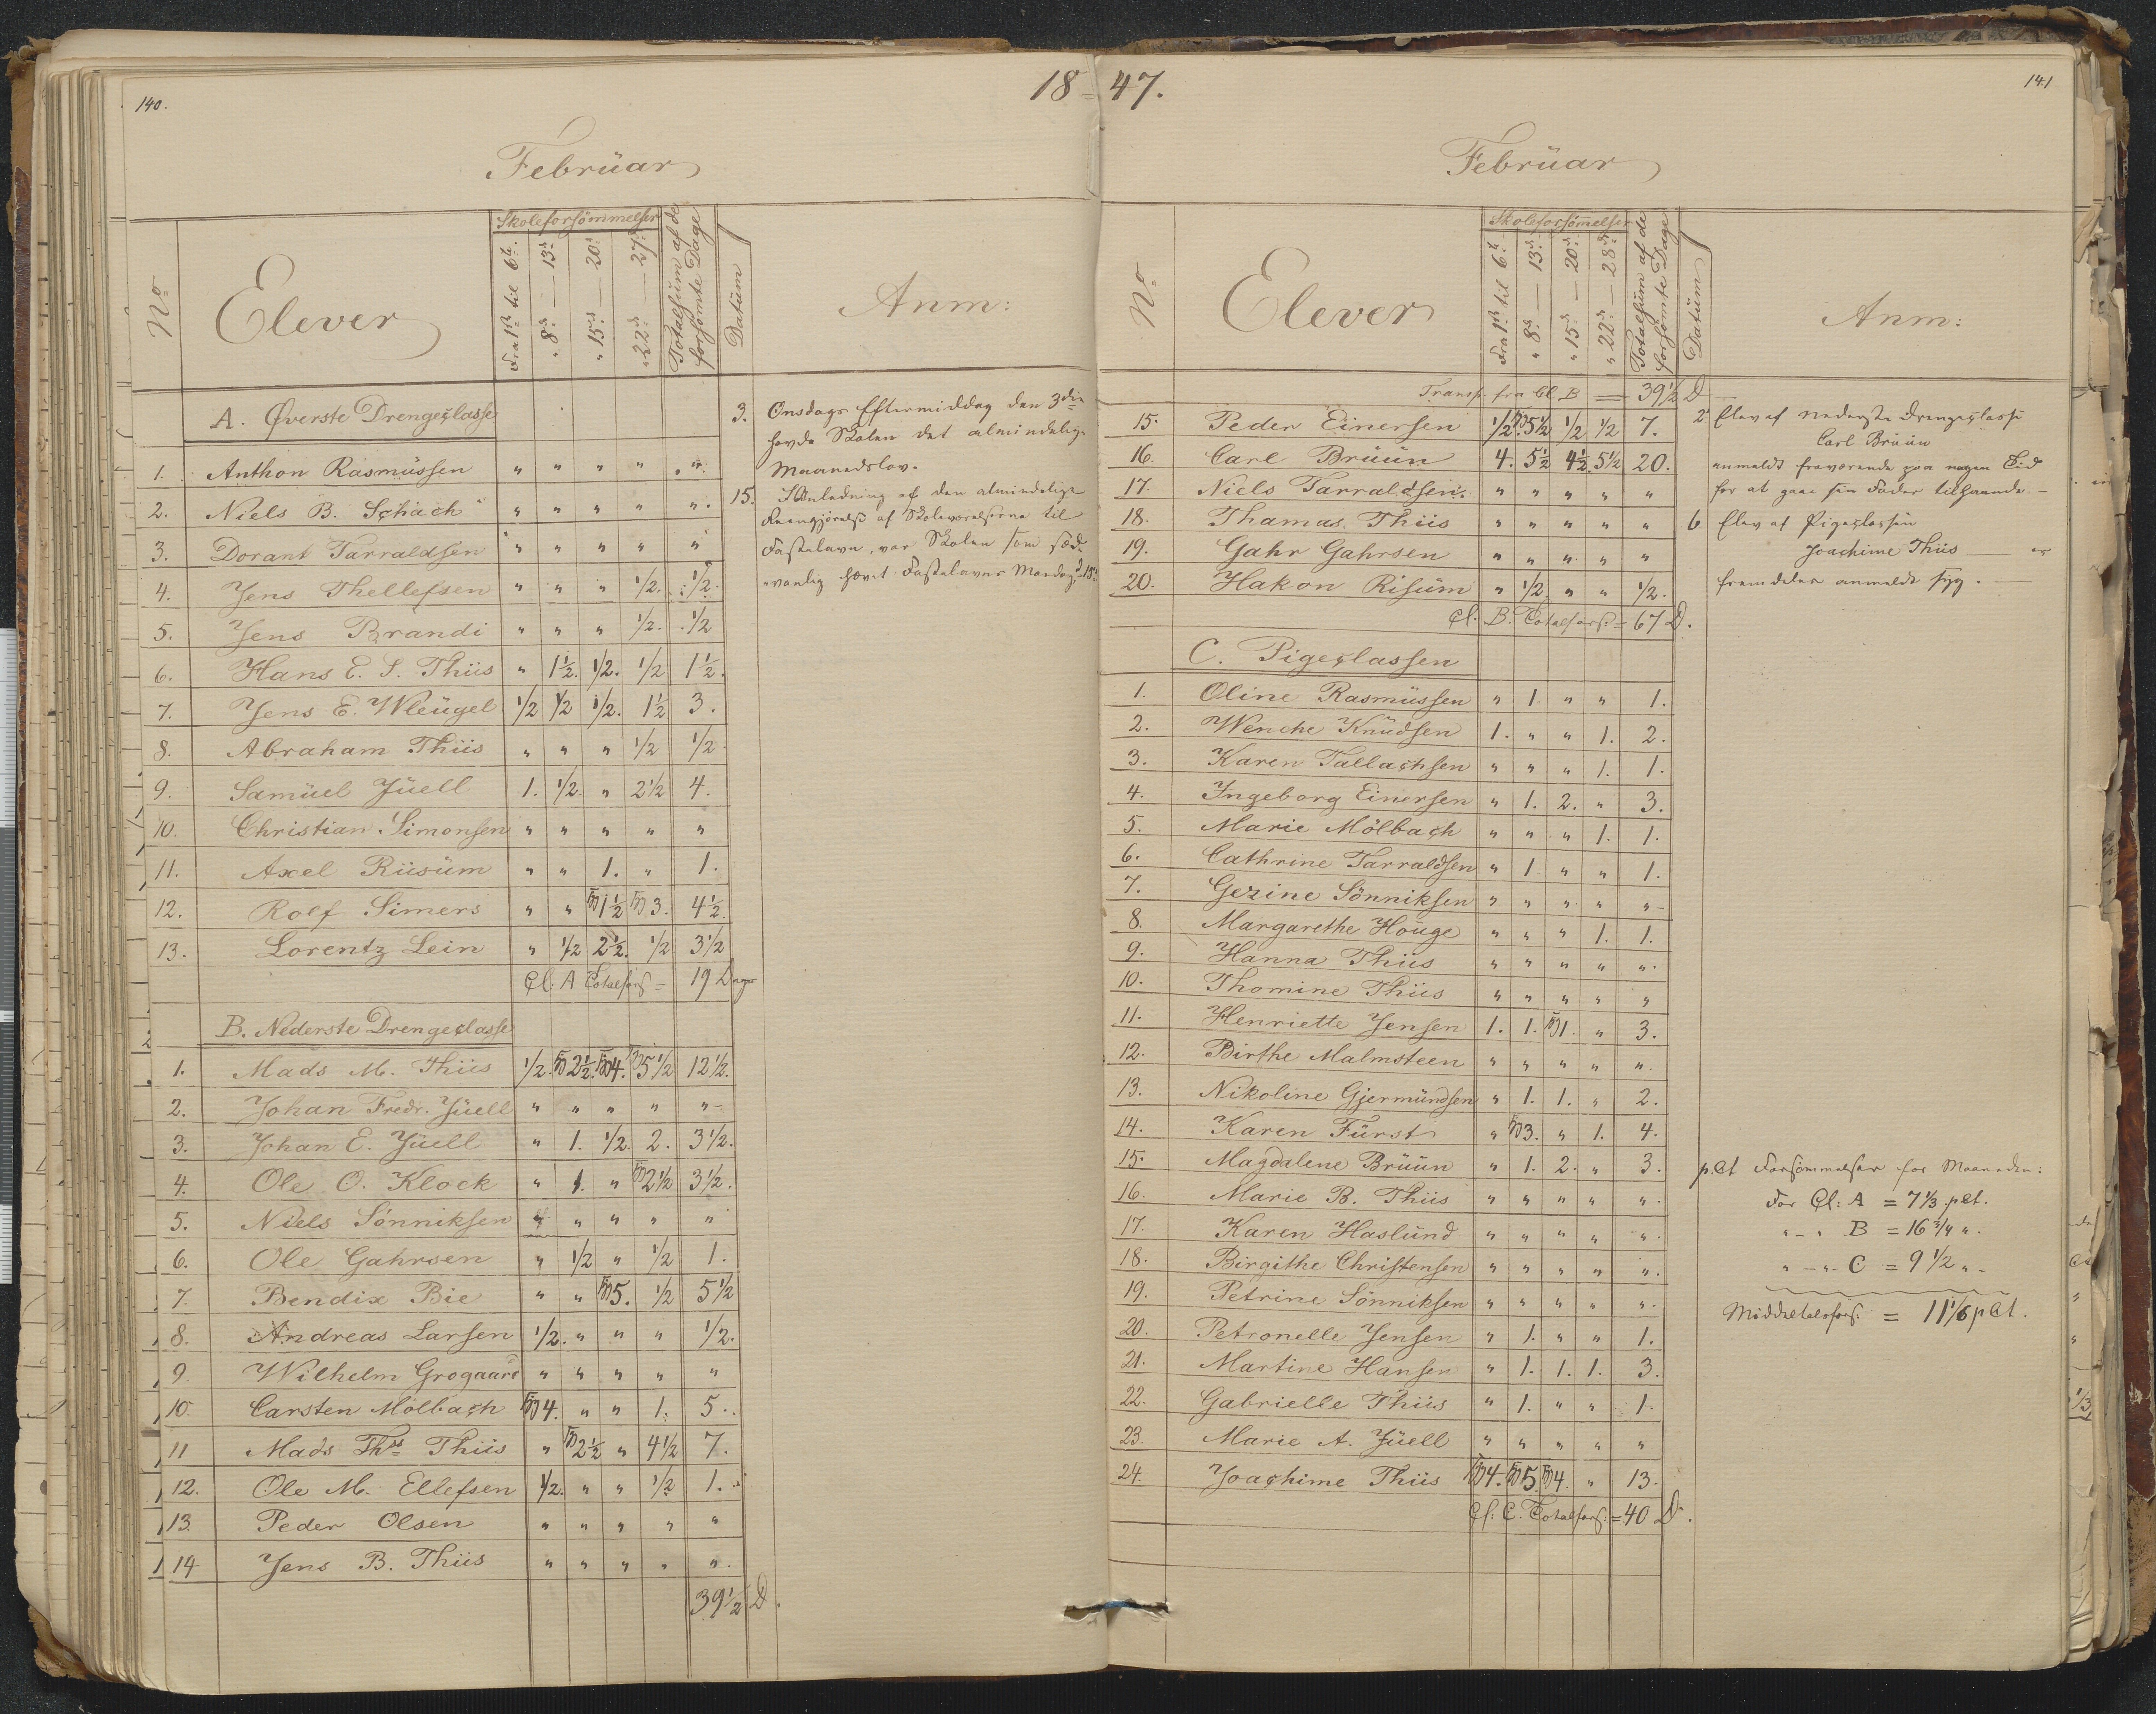 140.
18
Februar
No
Elever
Skoleforsömmelser
Fra 1ste til 6te
" 8de — 13de
" 15de — 20de
" 22de — 27de
Totalsum af de forsömte Dage
Datum
Anm:
A. Øverste Drengeclasse
1. Anthon Rasmussen " " " " "
2. Niels B. Schach " " " " "
3. Dorant Tarraldsen " " " " "
4. Jens Thellefsen " " " 1/2. 1/2.
5. Jens Brandi " " " 1/2. 1/2
6. Hans E. S. Thiis " 1 1/2. 1/2. 1/2 1 1/2.
7. Jens E. Wleugel 1/2 1/2 1/2. 1 1/2 3.
8. Abraham Thiis " " " 1/2 1/2
9. Samuel Juell 1. 1/2. " 2 1/2 4.
10. Christian Simonsen " " " " "
11. Axel Riisum " " 1. " 1.
12. Rolf Simers " " 1 1/2 3. 4 1/2.
13. Lorentz Lein " 1/2 2 1/2. 1/2 3 1/2
Cl: A Totalfors = 19 Dage
B. Nederste Drengeclasse
1. Mads M. Thiis 1/2. 2 1/2. 4. 5 1/2 12 1/2.
2. Johan Fredr. Juell " " " " "
3. Johan E. Juell " 1. 1/2. 2. 3 1/2.
4. Ole O. Klock " 1. " 2 1/2 3 1/2.
5. Niels Sönniksen " " " " "
6. Ole Gahrsen " 1/2 " 1/2 1.
7. Bendix Bie " " 5. 1/2 5 1/2
8. Andreas Larsen 1/2. " " " 1/2.
9. Wilhelm Grogaard " " " " "
10. Carsten Mölbach 4. " " 1. 5.
11 Mads Ths Thiis " 2 1/2 " 4 1/2 7.
12. Ole M. Ellefsen 1/2. " " 1/2 1.
13. Peder Olsen " " " " "
14 Jens B. Thiis " " " " ".
39 1/2 D.
3. Onsdags Eftermiddag den 3die
havde Skolen det almindelige
Maanedslov.
15. I Anledning af den almindelige
Reengjörelse af Skoleværelserne til
Fastelavn, var Skolen som sæd-
vanlig hævet Fastelavns Mandag d 15de
47.
141
Februar
No
Elever
Skoleforsömelser
Fra 1ste til 6te
" 8de — 13de
" 15de — 20de
" 22de — 28de
Totalsum af de forsömte Dage
Datum
Anm:
Transp. fra Cl. B = 39 1/2 D
15. Peder Einersen 1/2 5 1/2 1/2 1/2 7.
16. Carl Bruun 4. 5 1/2 4 1/2. 5 1/2 20.
17. Niels Tarraldsen. " " " " "
18. Thamas Thiis " " " " "
19. Gahr Gahrsen " " " " "
20. Hakon Risum " 1/2. " " 1/2.
Cl. B. Totalfors. = 67 D.
C. Pigeclassen
1. Oline Rasmussen " 1. " " 1.
2. Wenche Knudsen 1. " " 1. 2.
3. Karen Tallachsen " " " 1. 1.
4. Ingeborg Einersen " 1. 2. " 3.
5. Marie Mölbach " " " 1. 1.
6. Cathrine Tarraldsen " 1 " " 1.
7. Gezine Sönniksen " " " " "
8. Margarethe Houge " " " 1. 1.
9. Hanna Thiis " " " " ".
10. Thomine Thiis " " " " "
11. Henriette Jensen 1. 1. 1. " 3.
12. Birthe Malmsteen " " " " ".
13. Nikoline Gjermundsen " 1. 1. " 2.
14. Karen Fürst " 3. " 1. 4.
15. Magdalene Bruun " 1. 2. " 3.
16. Marie B. Thiis " " " " ".
17. Karen Haslund " " " " ".
18. Birgithe Christensen " " " " ".
19. Petrine Sönniksen " " " " ".
20. Petronelle Jensen " 1. " " 1.
21. Martine Hansen " 1. 1. 1. 3.
22. Gabrielle Thiis " 1. " " 1.
23. Marie A. Juell " " " " "
24. Joachime Thiis 4. 5. 4. " 13.
Cl: C. Totalfors: = 40 D.
2 Elev af nederste Drengeclasse
Carl Bruun
anmeldt fraværende paa nogen Tid
for at gaae sin Fader tilhaande. —
6 Elev af Pigeclassen
Joachime Thiis — er
fremdeles anmeldt syg. —
p.Ct Forsömmelser for Maaneden:
For Cl: A = 7 1/3 pCt.
" - " B = 16 3/4 ".
" - " C = 9 1/2 "-
Middeltalsfors: = 11 1/6 pCt.